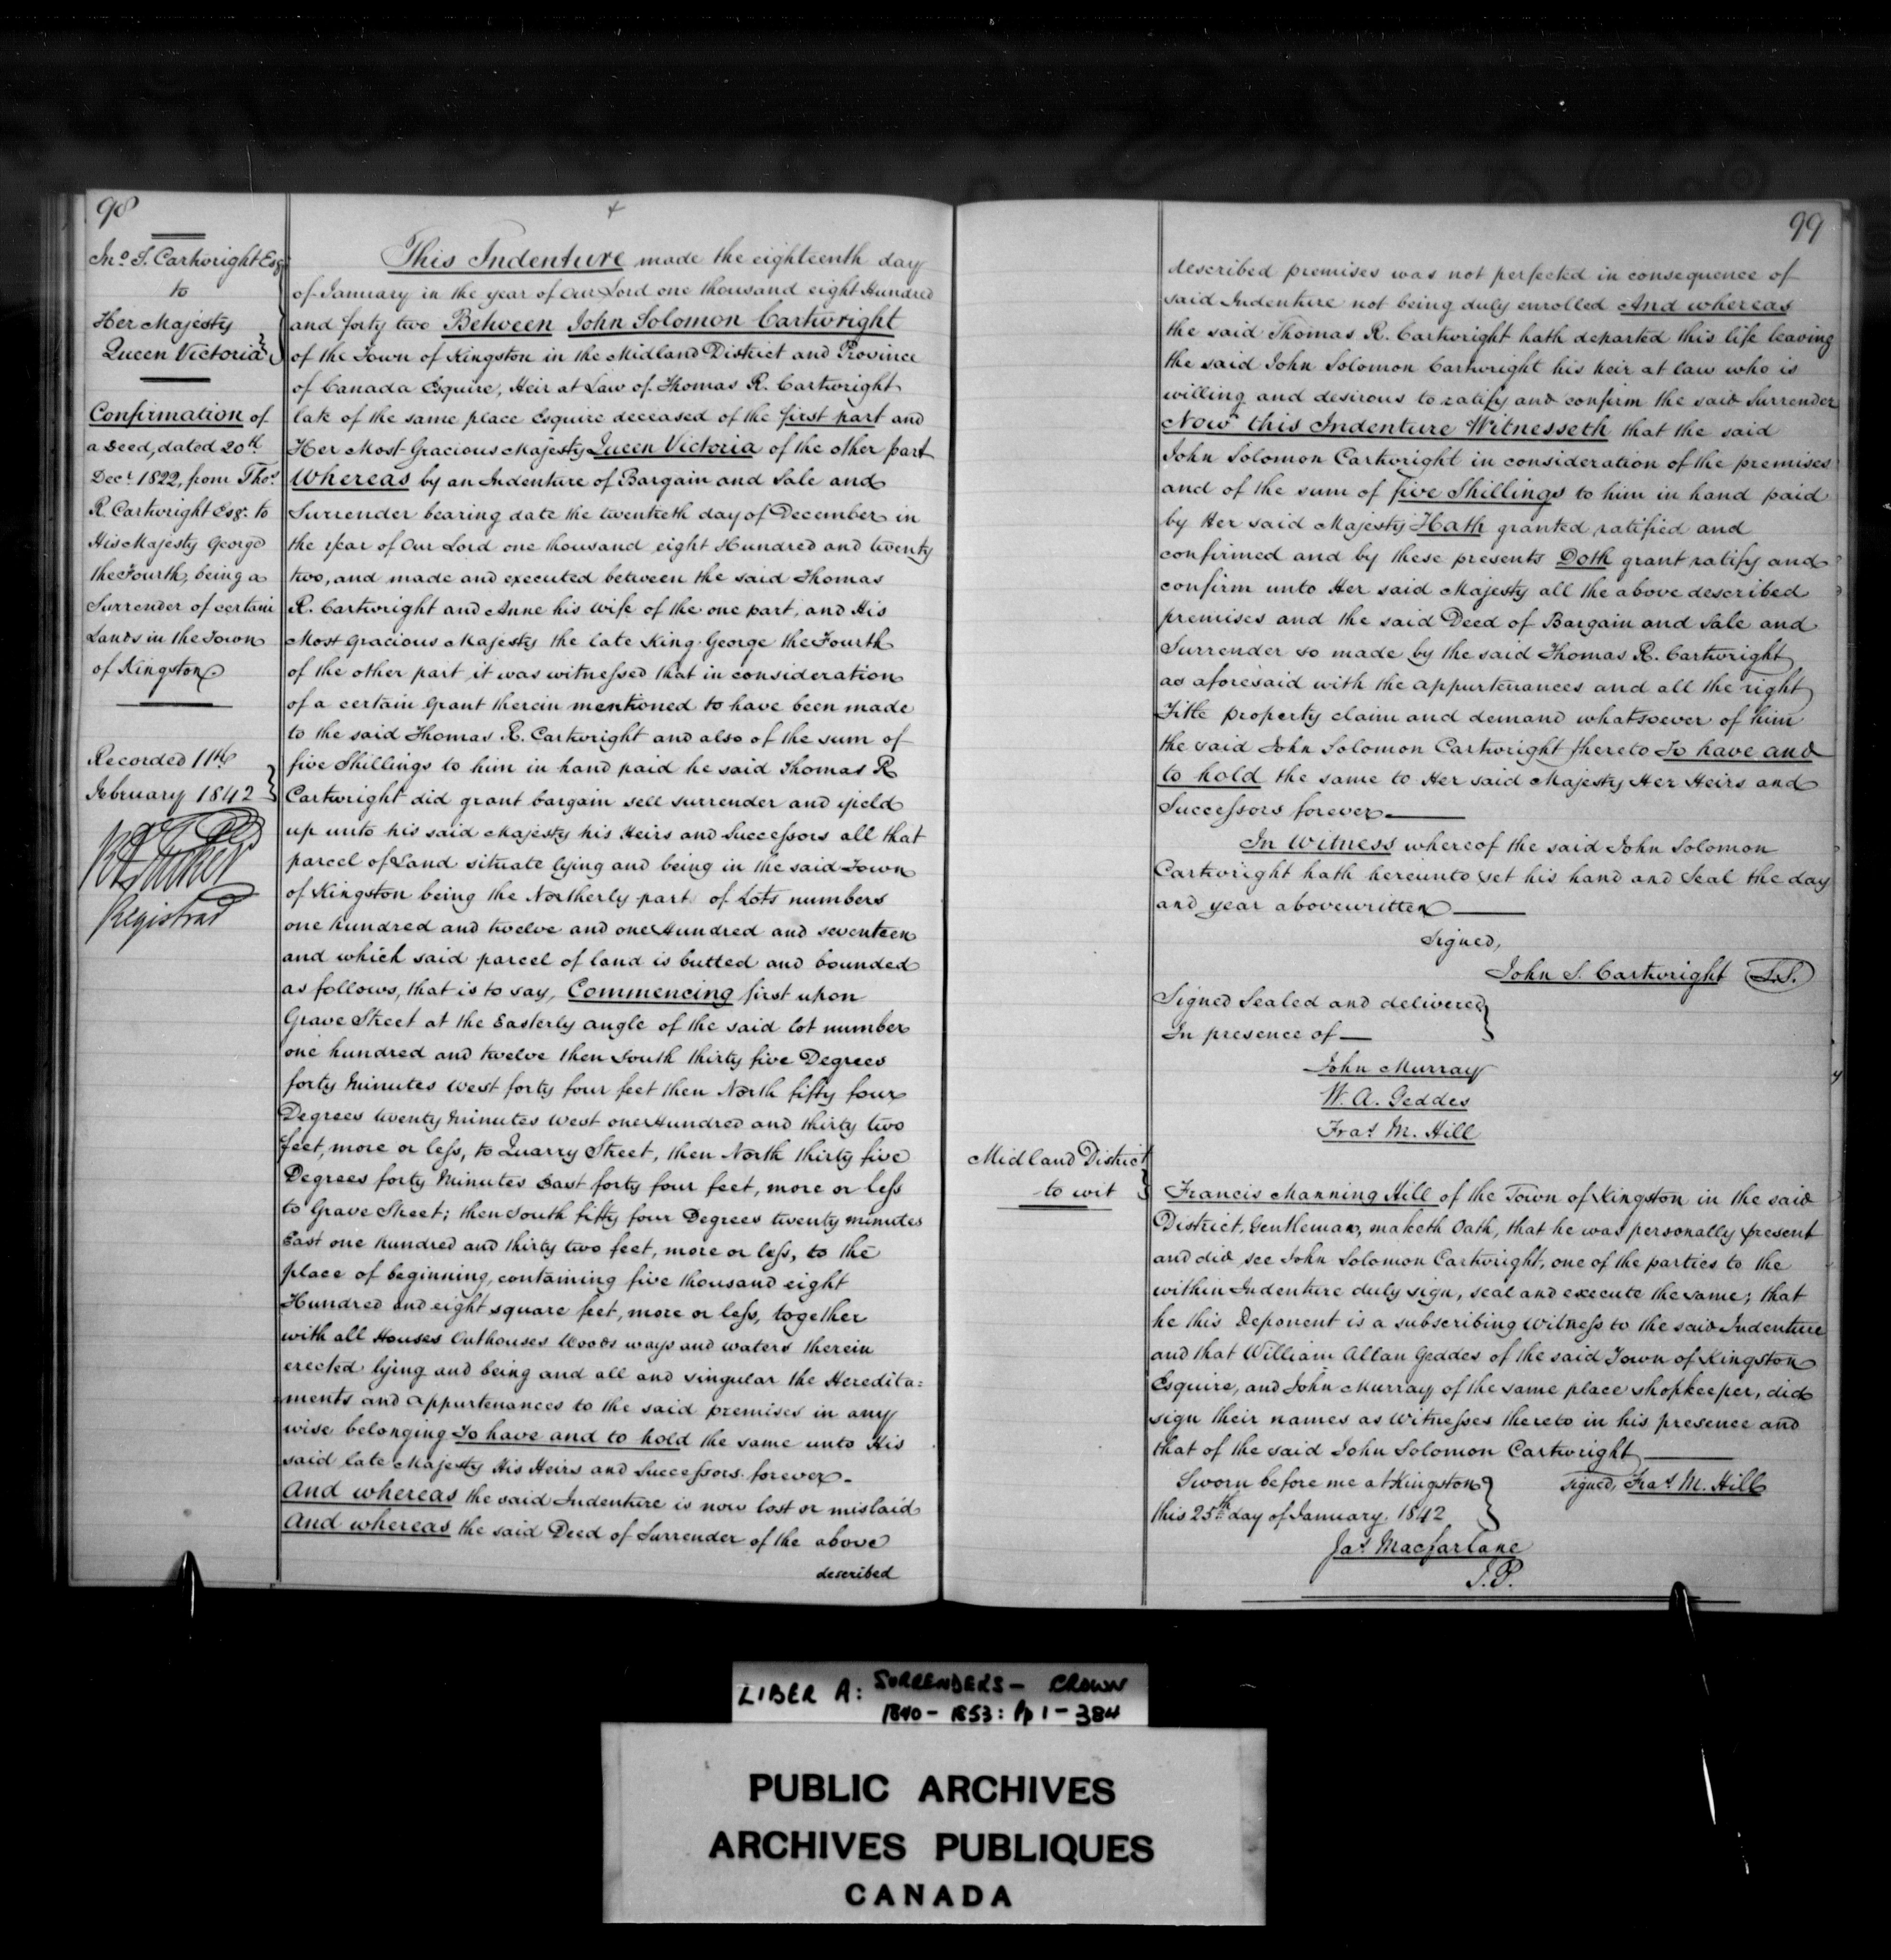 98
Jno. S. Cartwright Esqr.
to
Her Majesty
Queen Victoria
Confirmation of
a Deed, dated 20th
Decr. 1822, from Thos.
R. Cartwright Esqr. to
His Majesty George
the Fourth, being a
Surrender of certain
Lands in the Town
of Kingston
Recorded 11th
February 1842
Registrar
This Indenture made the eighteenth day
of January in the year of Our Lord one thousand eight Hundred
and forty two Between John Solomon Cartwright
of the Town of Kingston in the Midland District and Province
of Canada Esquire, Heir at Law of Thomas R. Cartwright
late of the same place Esquire deceased of the first part and
Her Most Gracious Majesty Queen Victoria of the other part
Whereas by an Indenture of Bargain and Sale and
Surrender bearing date the twentieth day of December in
the Year of Our Lord one thousand eight Hundred and twenty
two, and made and executed between the said Thomas
R. Cartwright and Anne his Wife of the one part, and His
Most Gracious Majesty the late King George the Fourth
of the other part it was witnessed that in consideration
of a certain Grant therein mentioned to have been made
to the said Thomas R. Cartwright and also of the sum of
five Shillings to him in hand paid he said Thomas R
Cartwright did grant bargain sell surrender and yield
up unto his said Majesty his Heirs and Successors all that
parcel of Land situate lying and being in the said Town
of Kingston being the Northerly part of Lots numbers
one hundred and twelve and one Hundred and seventeen
and which said parcel of land is butted and bounded
as follows, that is to say, Commencing first upon
Grave Street at the Easterly angle of the said lot number
one hundred and twelve then South thirty five Degrees
forty Minutes West forty four feet then North fifty four
Degrees twenty Minutes West one Hundred and thirty two
feet, more or less, to Quarry Street, then North thirty five
Degrees forty Minutes East forty four feet, more or less
to Grave Street; then South fifty four Degrees twenty minutes
East one hundred and thirty two feet, more or less, to the
place of beginning, containing five thousand eight
Hundred and eight square feet, more or less, together
with all Houses Outhouses Woods ways and waters therein
erected lying and being and all and singular the Heredita=
ments and Appurtenances to the said premises in any
wise belonging To have and to hold the same unto His
said late Majesty His Heirs and Successors forever-
And whereas the said Indenture is now lost or mislaid
And whereas the said Deed of Surrender of the above
described
99
described premises was not perfected in consequence of
said Indenture not being duly enrolled And whereas
the said Thomas R. Cartwright hath departed this life leaving
the said John Solomon Cartwright his heir at law who is
willing and desirous to ratify and confirm the said Surrender
Now this Indenture Witnesseth that the said
John Solomon Cartwright in consideration of the premises
and of the sum of five Shillings to him in hand paid
by Her said Majesty Hath granted ratified and
confirmed and by these presents Doth grant ratify and
confirm unto Her said Majesty all the above described
premises and the said Deed of Bargain and Sale and
Surrender so made by the said Thomas R. Cartwright
as aforesaid with the appurtenances and all the right
Title property claim and demand whatsoever of him
the said John Solomon Cartwright thereto To have and
to hold the same to Her said Majesty Her Heirs and
Successors forever
In Witness whereof the said John Solomon
Cartwright hath hereunto set his hand and Seal the day
and year abovewritten
Signed,
John S. Cartwright L.S.
Signed Sealed and delivered
In presence of
John Murray
W. A. Geddes
Fras. M. Hill
Midland District
to wit
Francis Manning Hill of the Town of Kingston in the said
District, Gentleman, maketh Oath, that he was personally present
and did see John Solomon Cartwright, one of the parties to the
within Indenture duly sign, seal and execute the same; that
he this Deponent is a subscribing Witness to the said Indenture
and that William Allan Geddes of the said Town of Kingston
Esquire, and John Murray of the same place shopkeeper, did
sign their names as Witnesses thereto in his presence and
that of the said John Solomon Cartwright
Sworn before me at Kingston
this 25th day of January 1842
signed, Fras. M. Hill
Jas. Macfarlane
J.P.
LIBER A: SURRENDERS - CROWN
1840 - 1853: Pp 1 - 384
PUBLIC ARCHIVES
ARCHIVES PUBLIQUES
CANADA